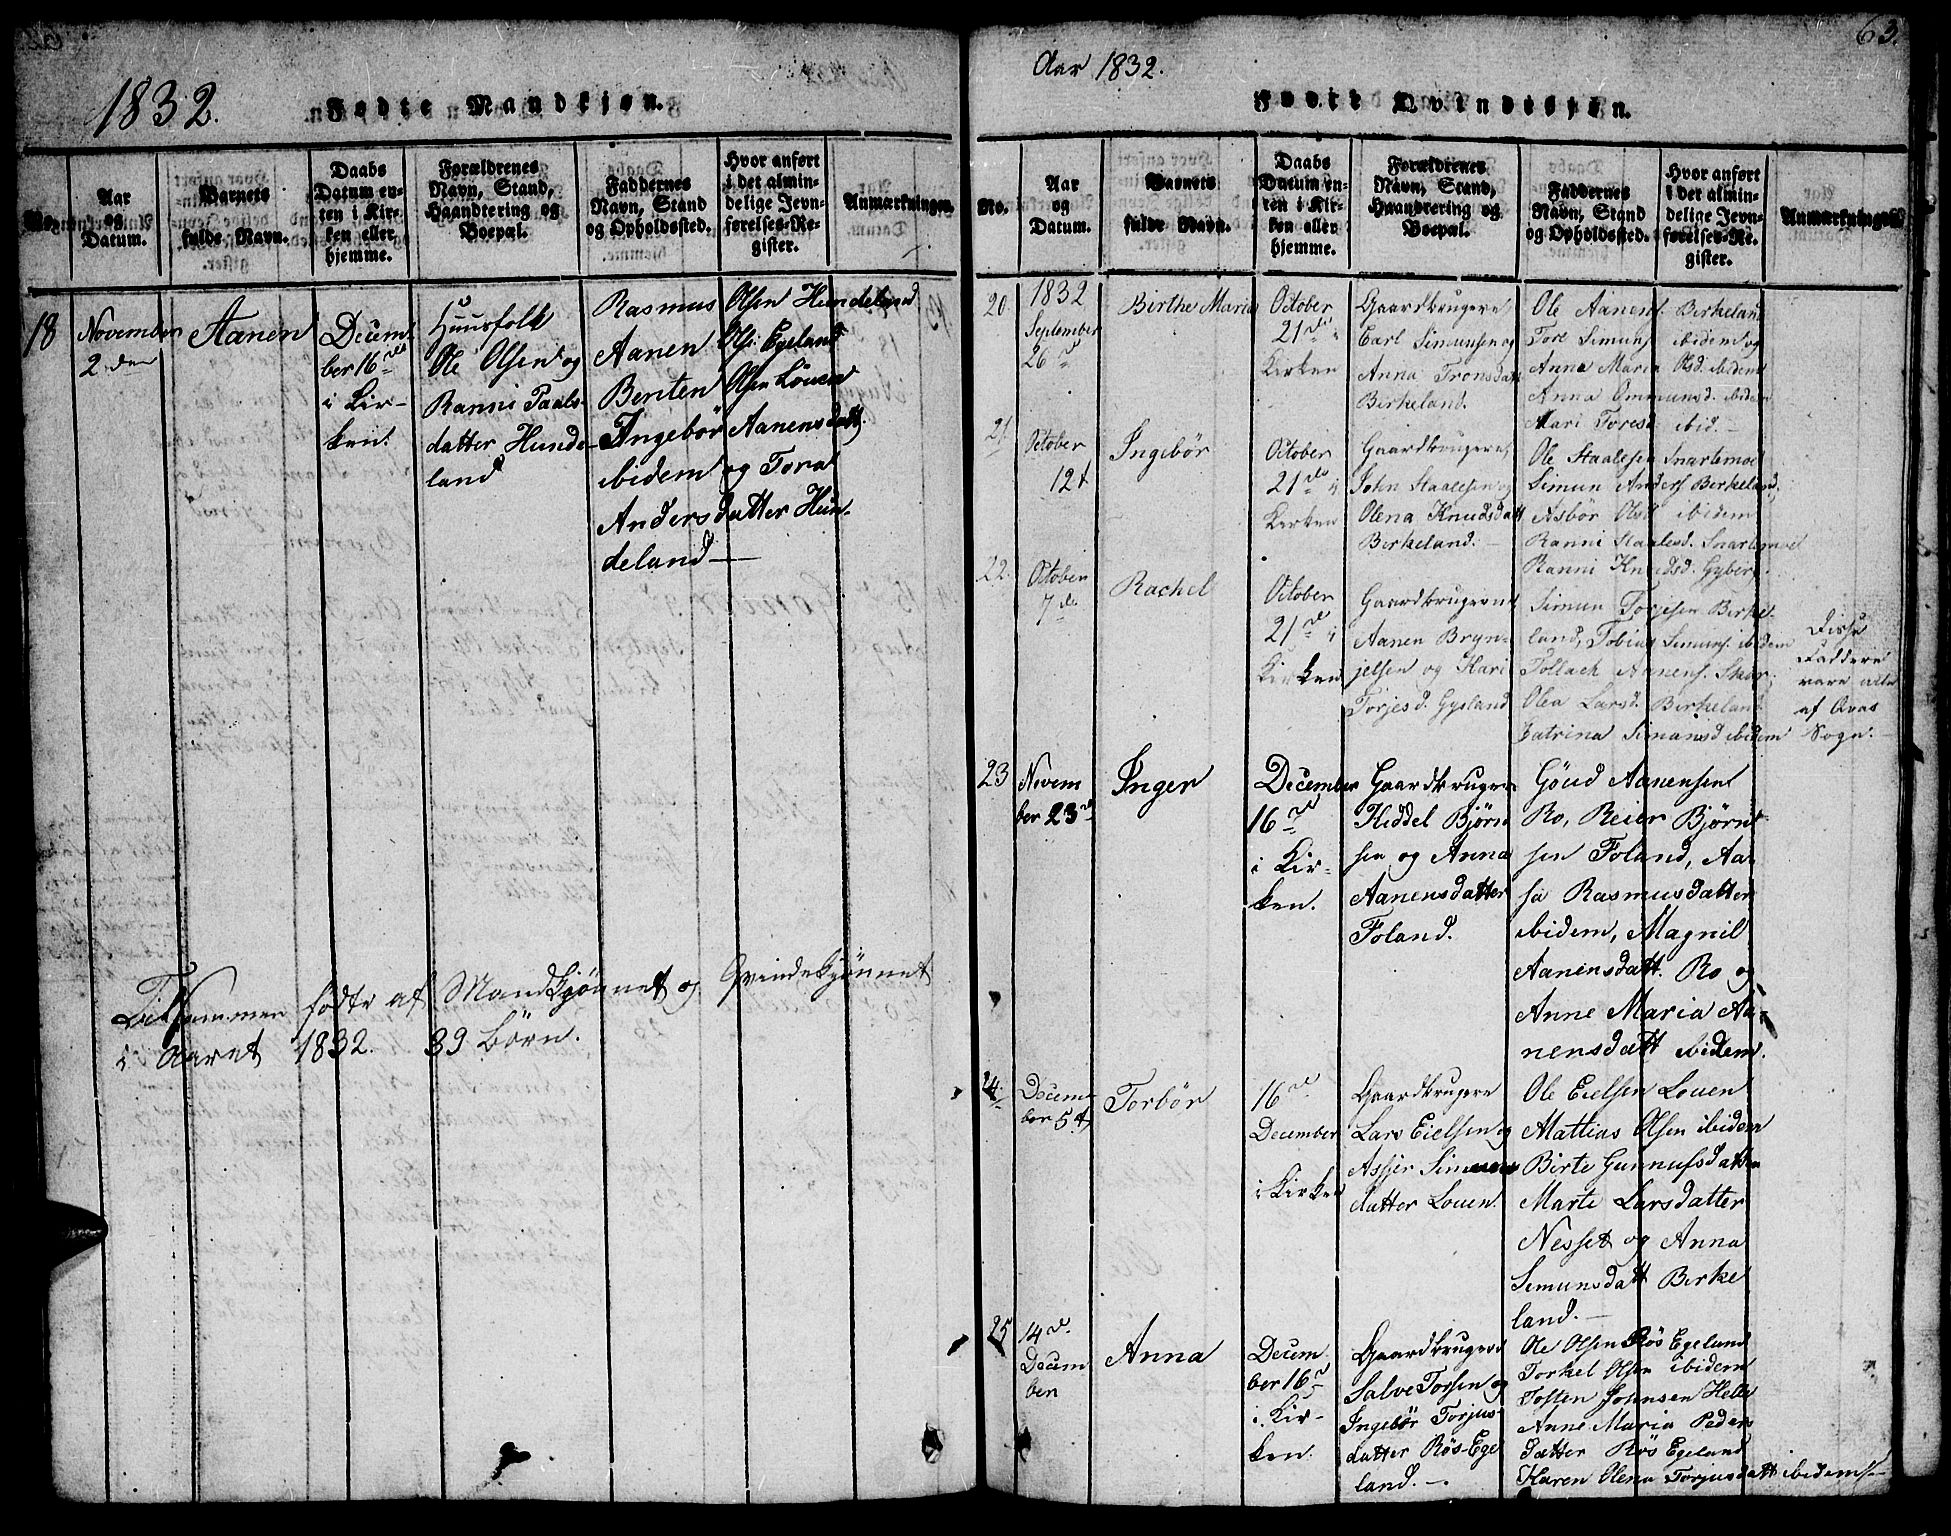 1832.
Fødte Mandkjøn.
No.
Aar
og
Datum.
Barnets
fulde Navn.
Daabs
Datum en-
ten i Kir-
ken eller
hjemme.
Forældrenes
Navn, Stand,
Haandtering og
Boepæl.
Faddernes
Navn, Stand
og Opholdssted.
Hvor anført
i det almin-
delige Jevn-
førelses-Re-
gister.
Anmærkninger.
18
November
2den
Aanen
Decem-
ber 16de
i Kir-
ken.
Huusfolk
Ole Olsen og
Ranni Paals-
datter Hunde-
land
Rasmus Olsen Hundeland
Aanen Ols: Egeland
Benten Olsen Löuen
Ingebör Aanensdatt.
ibidem og Tora
Andersdatter Hun-
deland
Tilsammen fødte af Mandkjønnet og Qvindekjønnet
i Aaret 1832. 39 Börn.
63.
Aar 1832.
Fødte Qvindekjøn.
No.
Aar
og
Datum.
Barnets
fulde Navn.
Daabs
Datum en-
ten i Kir-
ken eller
hjemme.
Forældrenes
Navn, Stand,
Haandtering og
Boepæl.
Faddernes
Navn, Stand
og Opholdssted.
Hvor anført
i det almin-
delige Jevn-
førelses-Re-
gister.
Anmærkninger.
20.
1832
September
26de
Birthe Maria
October
21de i
Kirken
Gaardbrugerne
Carl Simunsen og
Anna Tronsdatt
Birkeland.
Ole Aanens. Birkeland
Tore Simuns ibidem og
Anna Maria Olsd. ibidem
Anna Ommunsd. ibidem
Mari Toresd ibid.
21
October
12t
Ingebör
October
21de i
Kirken
Gaardbrugerne
John Staalesen og
Olena Knudsdatt
Birkeland.
Ole Staalesen Snartemoe
Simun Anders Birkeland,
Asbör Olsd ibidem
Ranni Staalesd. Snartemoe
Ranni Knudsd. Gyber
22.
October
7de
Rachel
October
21de i
Kirken
Gaardbrugerne
Aanen Bryn-
jelsen og Kari
Torjesd. Gysland
Simun Torjesen Birke-
land, Tobias Simuns. ibidem
Tollach Aanens. Skaar
Olea Larsd. Birkeland
Catrina Simunsd ibidem
Disse
Faddere
vare alle
af Qvas
Sogn.
23
Novem
ber 23de
Inger
December
16de
i Kir-
ken.
Gaardbrugere
Kiddel Bjørn
sen og Anna
Aanensdatter
Foland.
Göud Aanensen
Ro, Reier Björn
sen Foland, Aa-
sa Rasmusdatter
ibidem, Magnil
Aanensdatt. Ro og
Anne Maria Aa-
nensdatt ibidem.
24.
Decem-
ber 5t
Torbör
16de
December
i Kirken
Gaardbrugere
Lars Eielsen og
Asjer Simuns
datter Louen.
Ole Eielsen Louen
Mattias Olsen ibidem
Birte Gunnufsdatter
Marte Larsdatter
Nesset og Anna
Simunsdatt Birke
land.
25
14de
Decem
ber
Anna
Decem
ber 16de
i Kir-
ken.
Gaardbrugere
Salve Torsen og
Ingebör Torjus-
datter Rös-Ege
land.
Ole Olsen Rös Egeland
Torkel Olsen ibidem
Tosten Johnsen Helle
Anne Maria Peders
datter Rös Egeland
Karen Olena Torjusdatt ibidem.